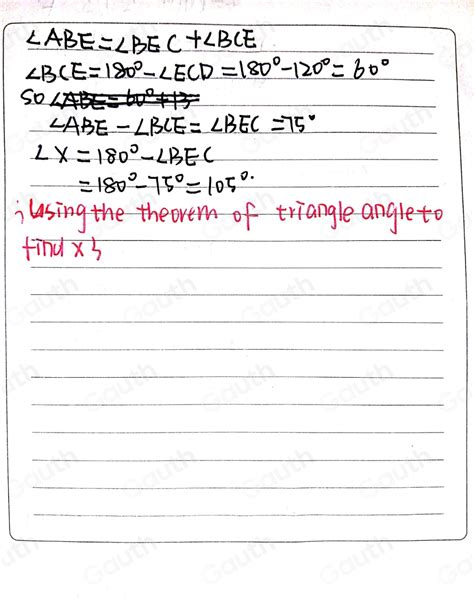 ∠ABE=∠BEC+∠BCE
∠BCE=180°-∠ECD=180°-120°=60°
so ∠ABE=60°+13
∠ABE-∠BCE=∠BEC=75°
∠X=180°-∠BEC
=180°-75°=105°.
; Using the theorem of triangle angle to
find x
Gauth